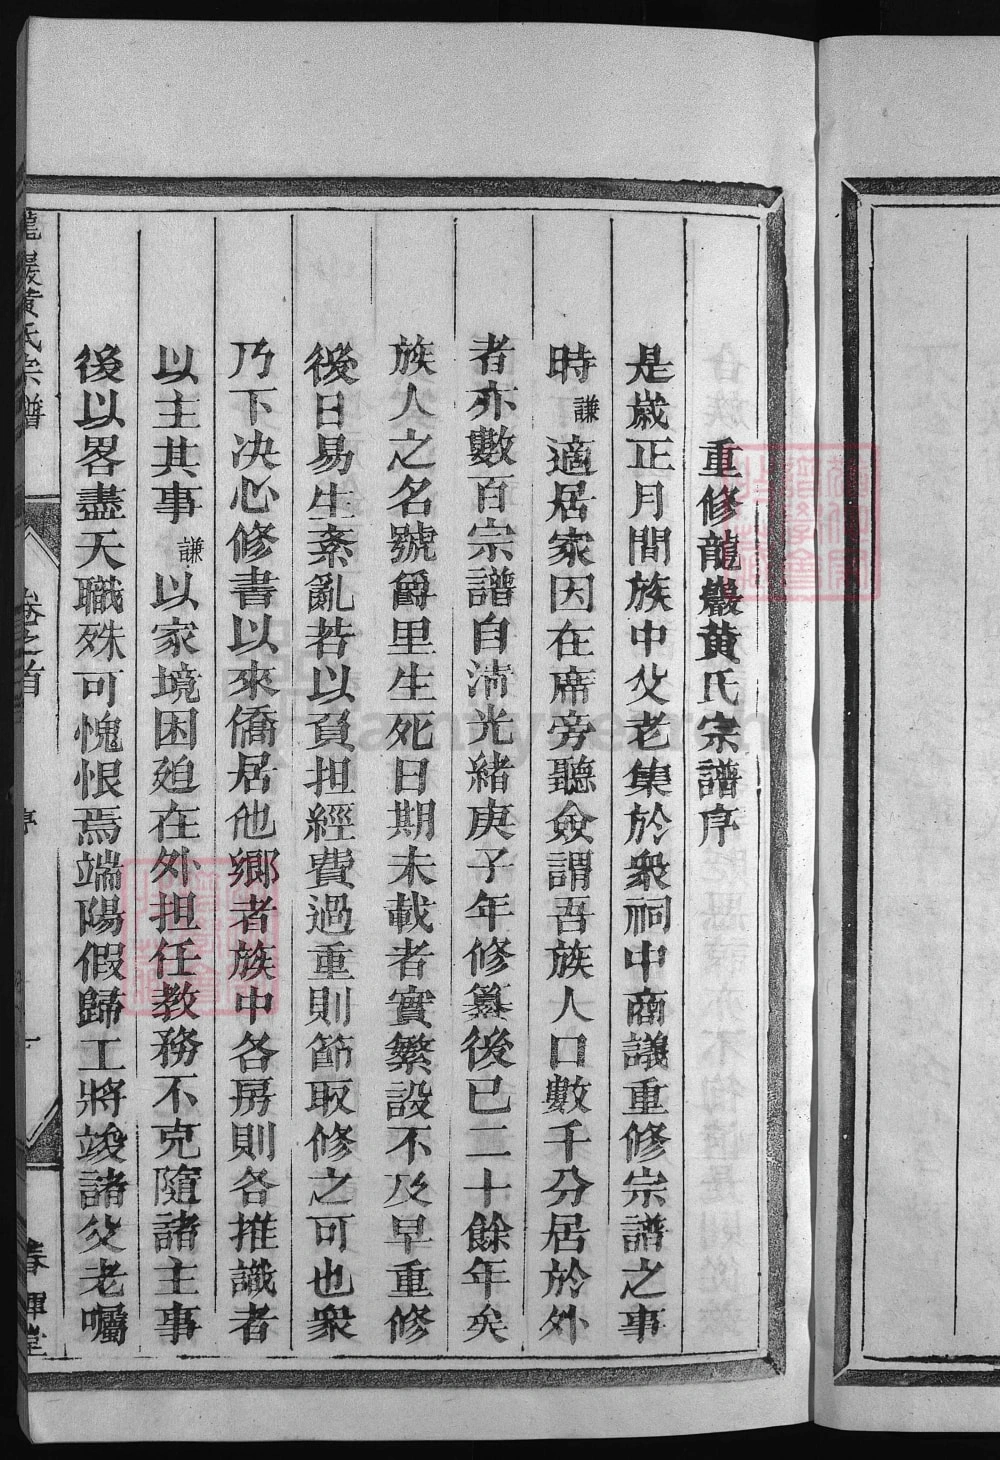 重修龍巖黄氏宗譜序
是歲正月間族中父老集於衆祠中商議重修宗譜之事
時謙適居家因在席旁聽僉謂吾族人口數千分居於外
者亦數百宗譜自淸光緒庚子年修纂後已二十餘年矣
族人之名號爵里生死日期未載者實繁設不及早重修
後日易生紊亂若以負担經費過重則節取修之可也衆
乃下决心修書以來僑居他鄉者族中各房則各推識者
以主其事謙以家境困廹在外担任教務不克隨諸主事
後以畧盡天職殊可愧恨焉端陽假歸工將竣諸父老囑
龍巖黄氏宗譜
卷之首
序
一
春暉堂
familysearch